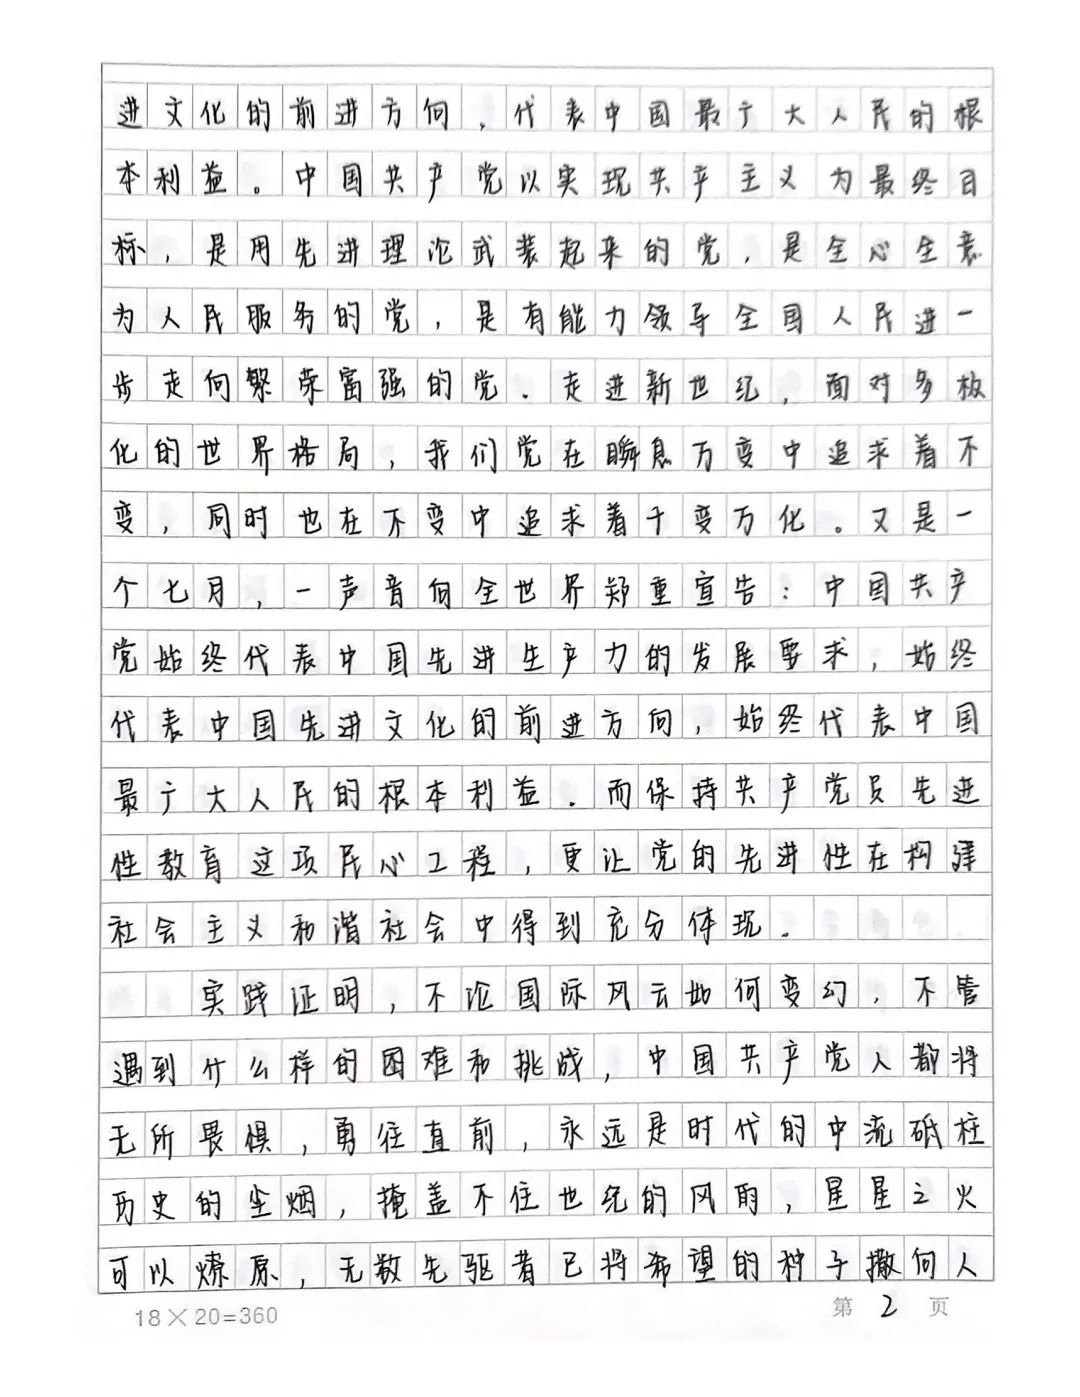 进文化的前进方向，代表中国最广大人民的根
本利益。中国共产党以实现共产主义为最终目
标，是用先进理论武装起来的党，是全心全意
为人民服务的党，是有能力领导全国人民进一
步走向繁荣富强的党．走进新世纪，面对多极
化的世界格局，我们党在瞬息万变中追求着不
变，同时也在不变中追求着千变万化。又是一
个七月，一声音向全世界郑重宣告：中国共产
党始终代表中国先进生产力的发展要求，始终
代表中国先进文化的前进方向，始终代表中国
最广大人民的根本利益．而保持共产党员先进
性教育这项民心工程，更让党的先进性在构建
社会主义和谐社会中得到充分体现。
实践证明，不论国际风云如何变幻，不管
遇到什么样的困难和挑战，中国共产党人都将
无所畏惧，勇往直前，永远是时代的中流砥柱
历史的尘烟，掩盖不住世纪的风雨，星星之火
可以燎原，无数先驱者已将希望的种子撒向人
18×20=360 第 2 页